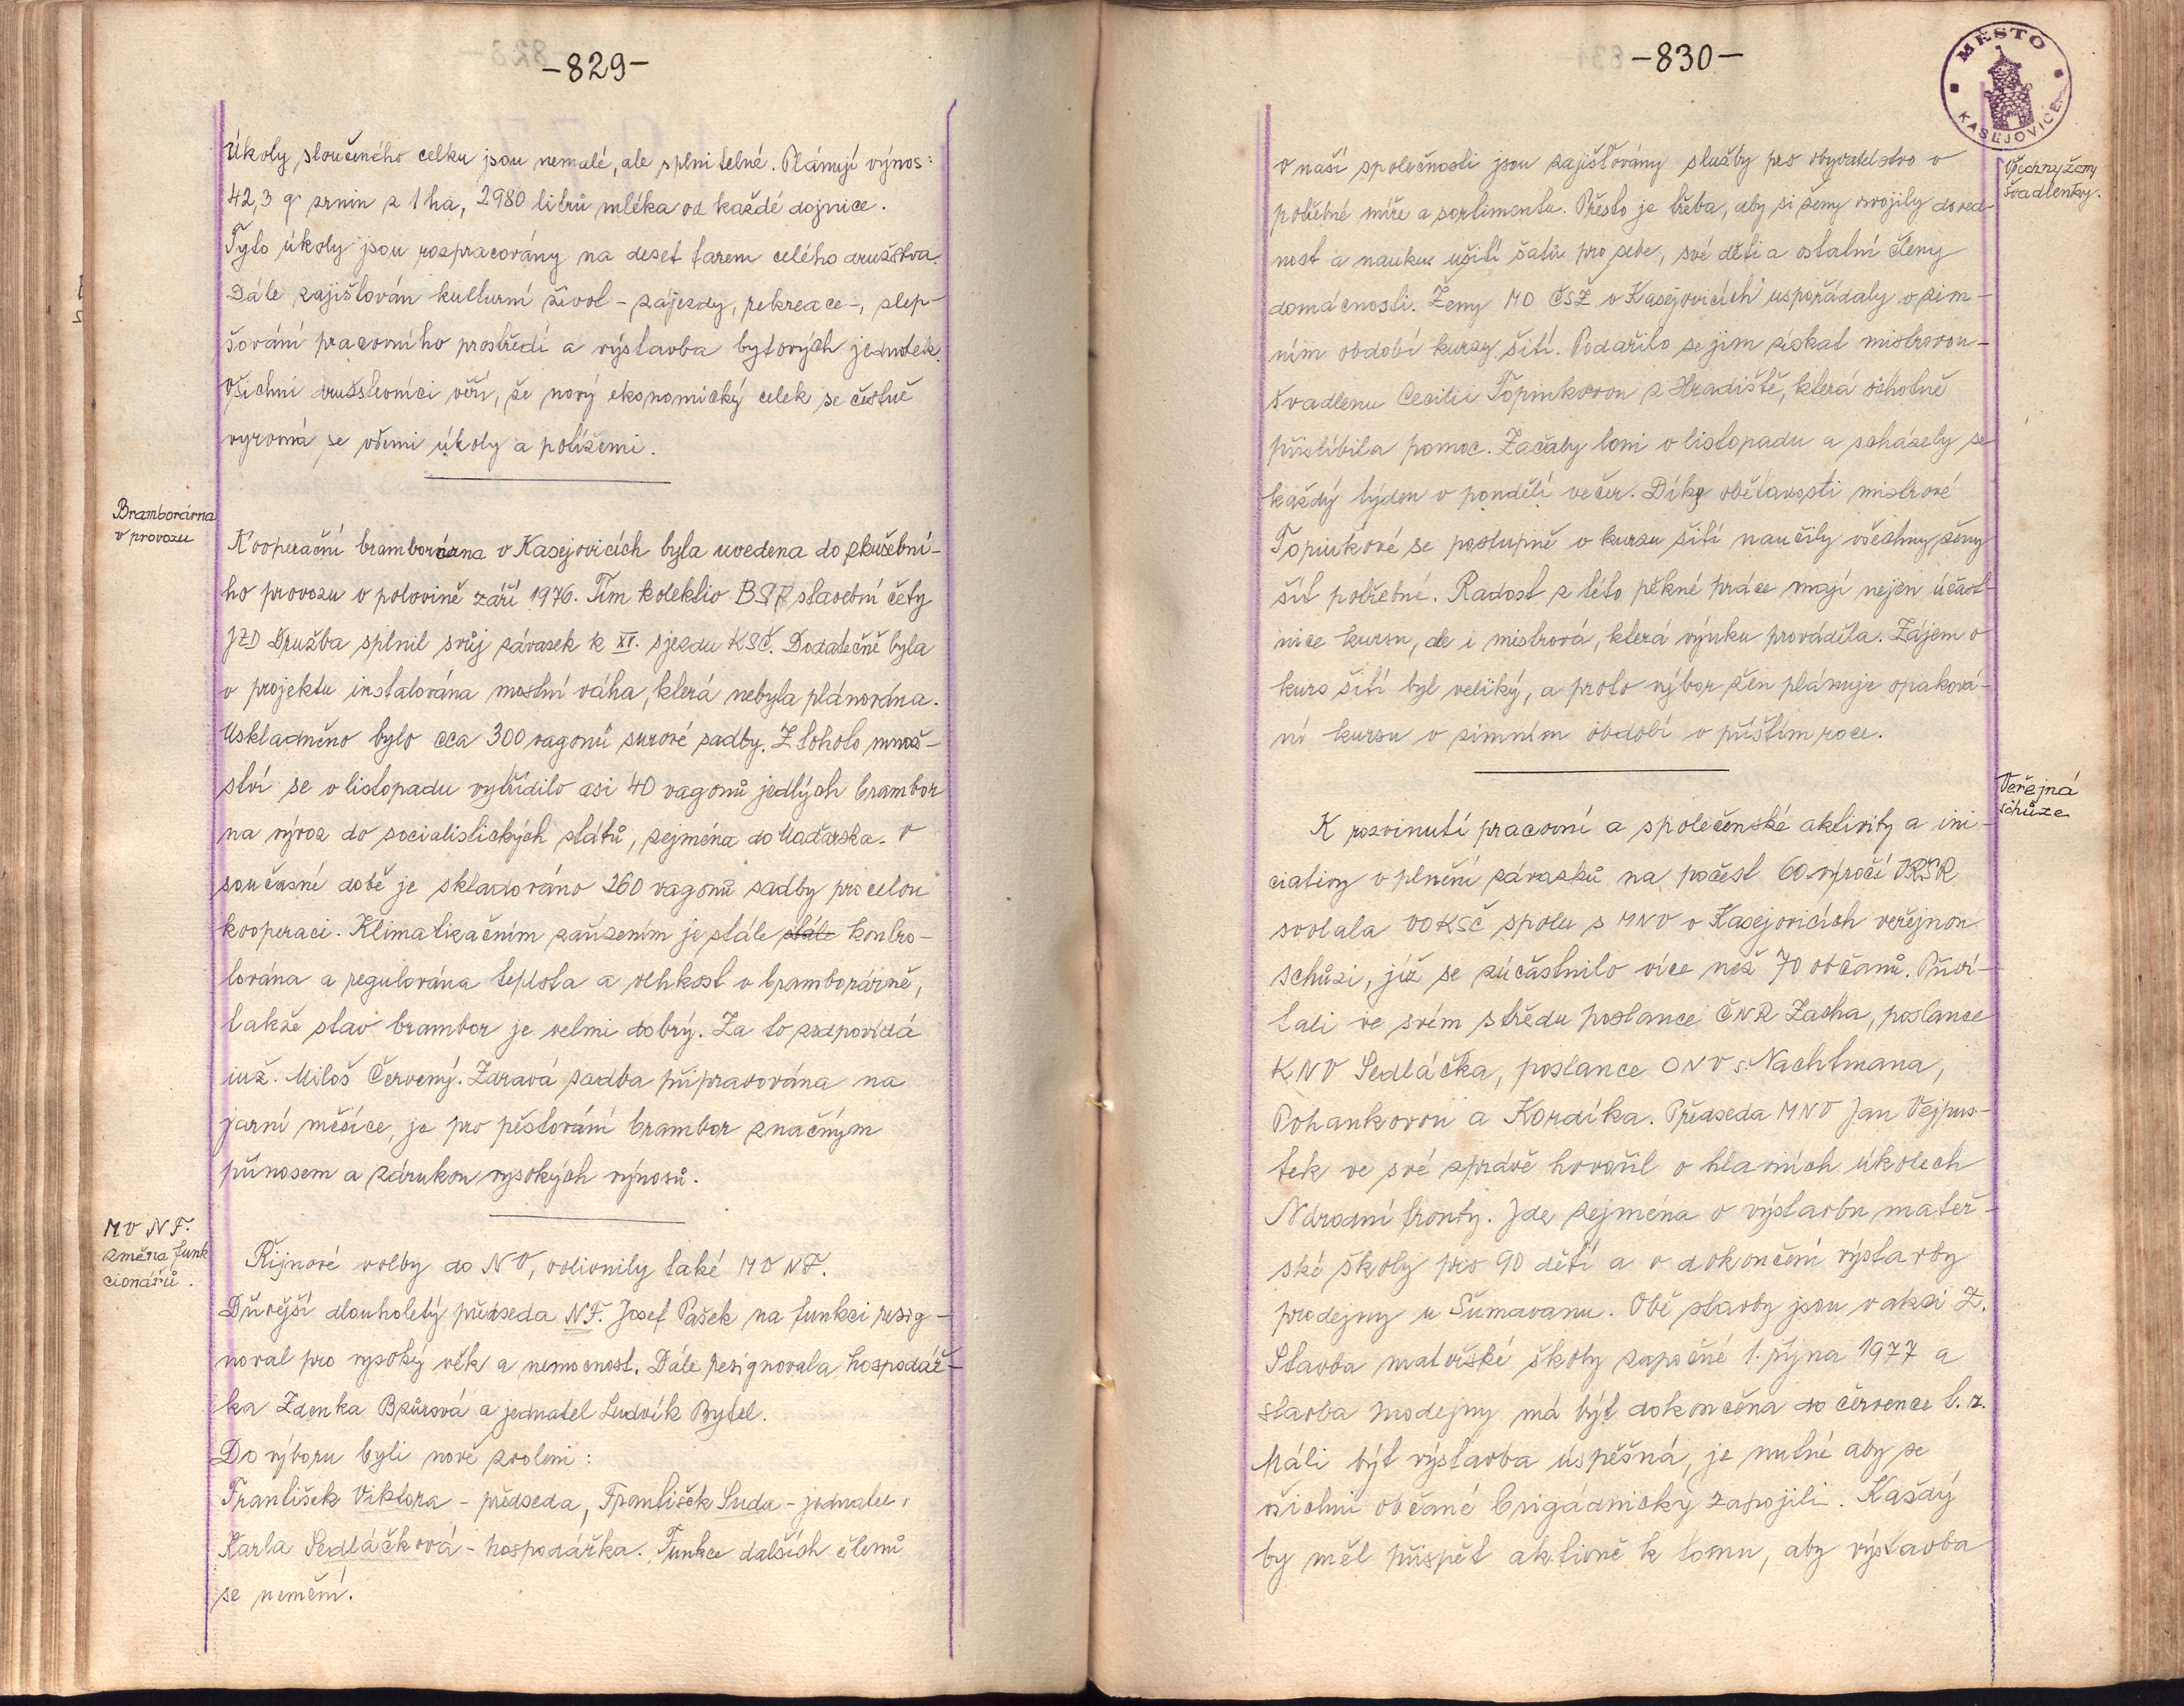 -829-
Úkoly sloučeného celku jsou nemalé, ale splnitelné. Plánují výnos:
42,3 q zrnin z 1 ha, 2980 litrů mléka od každé dojnice.
Tyto úkoly jsou rozpracovány na deset farem celého družstva.
Dále zajišťován kulturní život - zájezdy, rekreace -, zlep-
šování pracovního prostředí a výstavba bytových jednotek.
Všichni družstevníci věří, že nový ekonomický celek se čestně
vyrovná se všemi úkoly a potížemi.
Bramborárna
v provozu
Kooperační bramborárna v Kasejovicích byla uvedena do zkušební-
ho provozu v polovině září 1976. Tím kolektiv BSP stavební čety
JZD Družba splnil svůj závazek k XV. sjezdu KSČ. Dodatečně byla
v projektu instalována mostní váha, která nebyla plánována.
Uskladněno bylo cca 300 vagonů surové sadby. Z tohoto množ-
ství se v listopadu vytřídilo asi 40 vagonů jedlých brambor
na vývoz do socialistických států, zejména do Maďarska. V
současné době je skladováno 260 vagonů sadby pro celou
kooperaci. Klimatizačním zařízením je stále stále kontro-
lována a regulována teplota a vlhkost v bramborárně,
takže stav brambor je velmi dobrý. Za to zodpovídá
inž. Miloš Červený. Zdravá sadba připravována na
jarní měsíce, je pro pěstování brambor značným
přínosem a zárukou vysokých výnosů.
MV NF.
změna funk
cionářů.
Říjnové volby do NV, ovlivnily také MV NF.
Dřívější dlouholetý předseda NF. Josef Pašek na funkci rezig-
noval pro vysoký věk a nemocnost. Dále rezignovala hospodář-
ka Zdenka Bzůrová a jednatel Ludvík Bytel.
Do výboru byli nově zvoleni:
František Viktora - předseda, František Suda - jednatel,
Karla Sedláčková - hospodářka. Funkce dalších členů
se nemění.
-830-
MĚSTO
KASEJOVICE
Všechny ženy
švadlenky.
V naší společnosti jsou zajišťovány služby pro obyvatelstvo v
potřebné míře a sortimentu. Přesto je třeba, aby si ženy osvojily doved-
nost a nauku ušití šatů pro sebe, své děti a ostatní členy
domácnosti. Ženy MO ČSŽ v Kasejovicích uspořádaly v zim-
ním období kurzy šití. Podařilo se jim získat mistrovou-
švadlenu Cecilii Topinkovou z Hradiště, která ochotně
přislíbila pomoc. Začaly loni v listopadu a scházely se
každý týden v pondělí večer. Díky obětavosti mistrové
Topinkové se postupně v kurzu šití naučily všechny ženy
šít potřebné. Radost z této pěkné práce mají nejen účast-
nice kursu, ale i mistrová, která výuku prováděla. Zájem o
kurs šití byl veliký, a proto výbor žen plánuje opaková-
ní kursu v zimním období v příštím roce.
Veřejná
schůze
K rozvinutí pracovní a společenské aktivity a ini-
ciativy v plnění závazků na počest 60. výročí VŘSR
svolala VO KSČ spolu s MNV v Kasejovicích veřejnou
schůzi, jíž se zúčastnilo více než 70 občanů. Přiví-
tali ve svém středu poslance ČNR Zacha, poslance
KNV Sedláčka, poslance ONV s. Nachtmana,
Pohankovou a Kordíka. Předseda MNV Jan Vejpus-
tek ve své zprávě hovořil o hlavních úkolech
Národní fronty. Jde zejména o výstavbu mateř-
ské školy pro 90 dětí a o dokončení výstavby
prodejny u Šumavanu. Obě stavby jsou v akci Z.
Stavba mateřské školy započne 1. října 1977 a
stavba prodejny má být dokončena do července t.r.
Máli být výstavba úspěšná, je nutné aby se
všichni občané brigádnicky zapojili. Každý
by měl přispět aktivně k tomu, aby výstavba